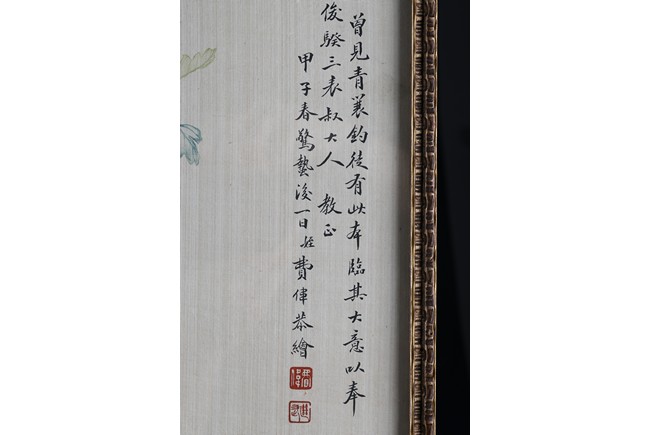 曾見青蓑釣徒有此本臨其大意以奉
俊騤三表叔大人 教正
甲子春驚蟄後一日姪費偉恭繪